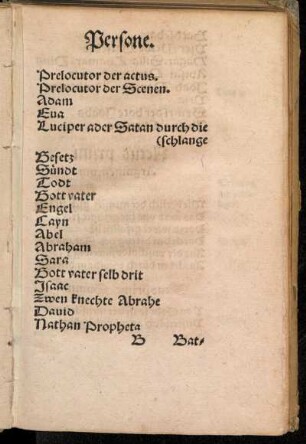 Persone.
Prelocutor der actus.
Prelocutor der Scenen.
Adam
Eua
Luciper ader Satan durch die
(schlange
Gesetz
Sündt
Todt
Gott vater
Engel
Cayn
Abel
Abraham
Sara
Gott vater selb drit
Isaac
Zwen knechte Abrahe
Dauid
Nathan Propheta
B Bat⸗